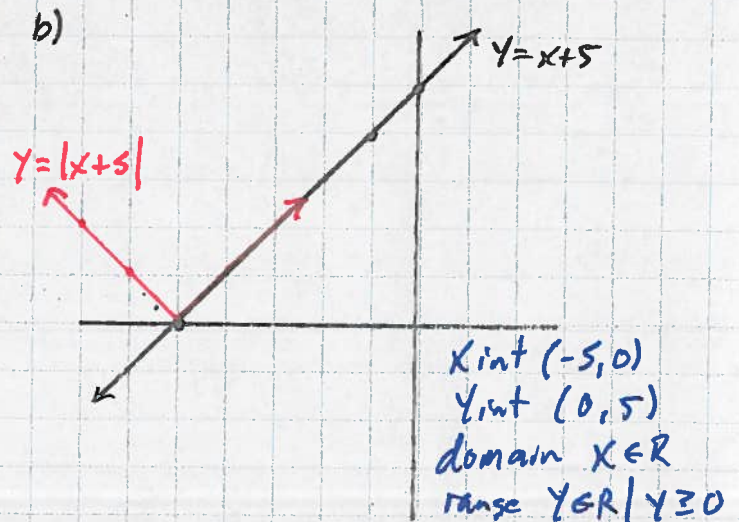 b)
y=x+5
y=|x+5|
x int (-5,0)
y int (0,5)
domain x∈R
range y∈R | y≥0